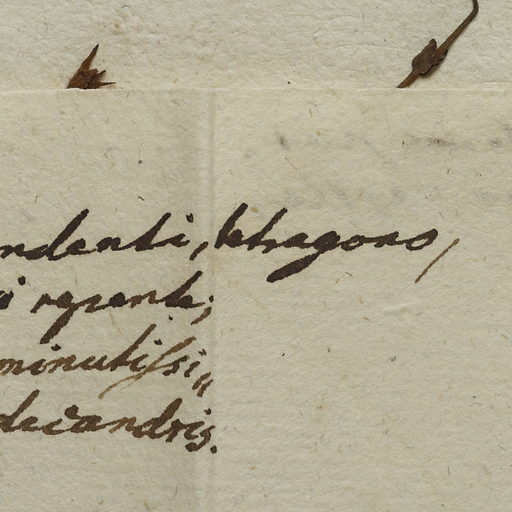 ndenti, tetragono,
i repente;
minutissi„
decandris.